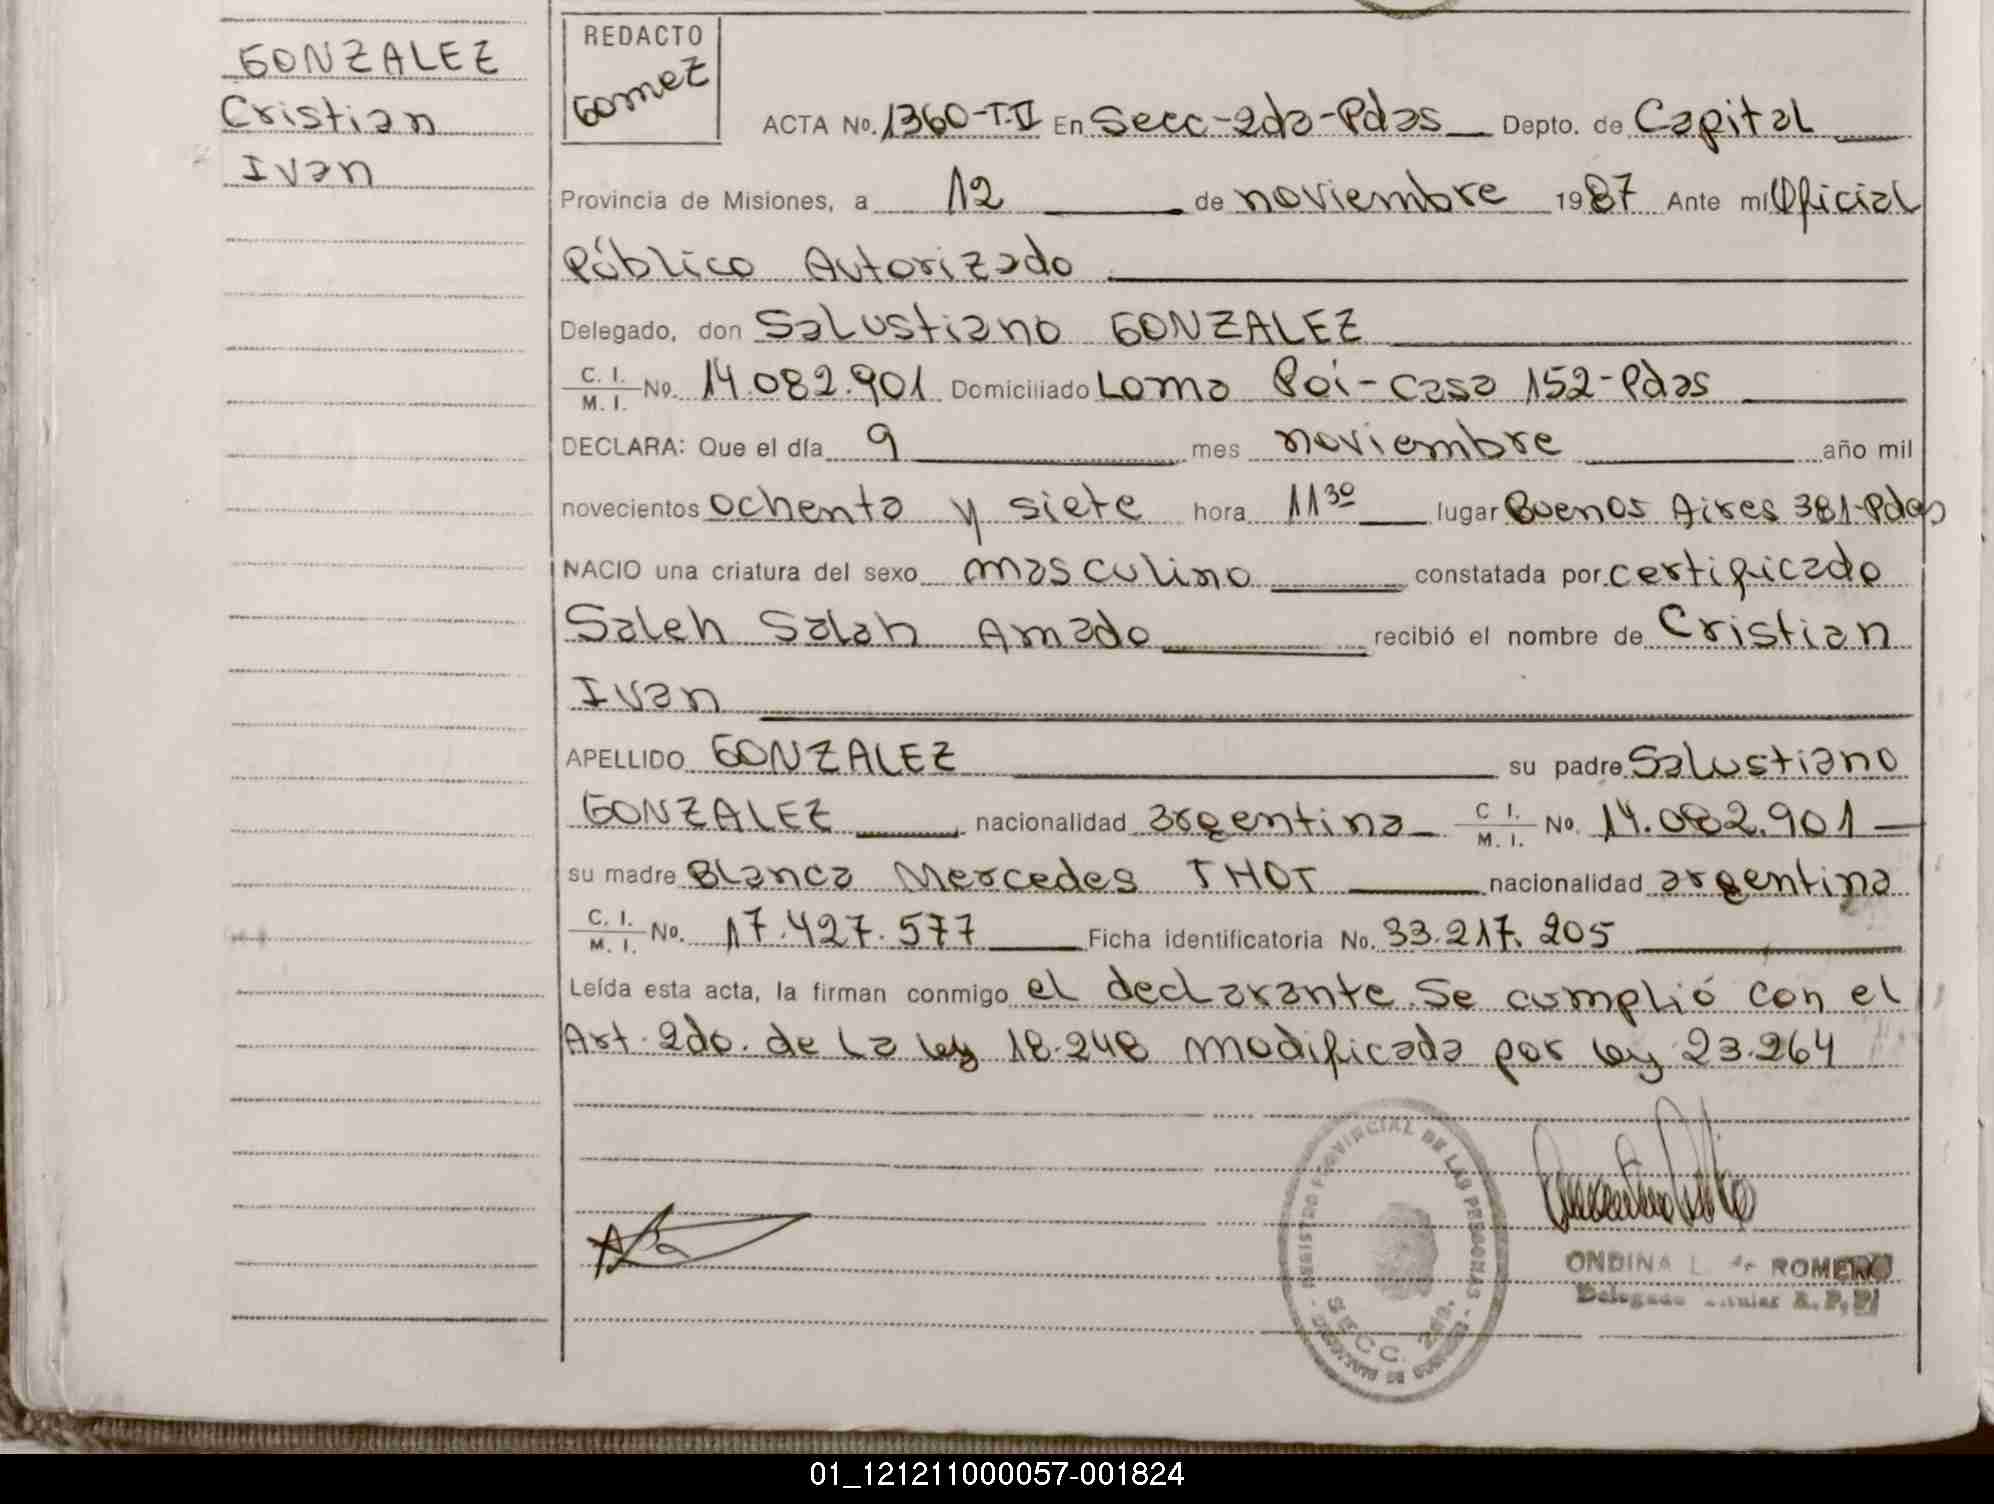 GONZALEZ
Cristian
Ivan
REDACTO
Gomez
ACTA No. 1360-T-II En Secc-2da-Pdas Depto. de Capital
Provincia de Misiones, a 12 de noviembre 1987 Ante mi Oficial
Público Autorizado
Delegado, don Salustiano GONZALEZ
C. I. / M. I. No. 14.082.901 Domiciliado Loma Poi-casa 152-Pdas
DECLARA: Que el día 9 mes noviembre año mil
novecientos ochenta y siete hora 11 30 lugar Buenos Aires 381-Pdas
NACIO una criatura del sexo masculino constatada por certificado
Saleh Salah Amado recibió el nombre de Cristian
Ivan
APELLIDO GONZALEZ su padre Salustiano
GONZALEZ nacionalidad argentina C. I. / M. I. No. 14.082.901
su madre Blanca Mercedes THOT nacionalidad argentina
C. I. / M. I. No. 17.427.577 Ficha identificatoria No. 33.217.205
Leída esta acta, la firman conmigo el declarante. Se cumplió con el
Art. 2do. de la ley 18.248 modificada por ley 23.264
REGISTRO PROVINCIAL DE LAS PERSONAS
SECC. 2da.
ONDINA L. de ROMERO
Delegado Titular R. P. P.
01_121211000057-001824